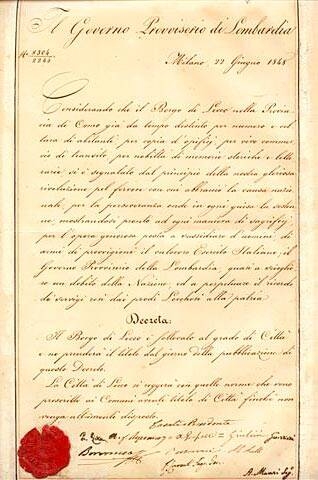 Il Governo Provvisorio di Lombardia
Milano 22 Giugno 1848
Considerando che il Borgo di Lecco nella Provin
cia di Como già da tempo distinto per numero e col
tura di abitanti per copia d'opifizj, per vivo commer
cio di transito per nobiltà di memorie storiche e lette
rarie si è segnalato dal principio della nostra gloriosa
rivoluzione pel fervore con cui abbracciò la causa nazio
nale, per la perseveranza onde in ogni guisa la sosten
ne mostrandosi pronto ad ogni maniera di sagrifizj
per l'opera generosa posta a sussidiare d'uomini di
armi di provvigioni il valoroso Esercito Italiano, il
Governo Provvisorio della Lombardia, quasi a scioglie
re un debito della Nazione, ed a perpetuare il ricordo
de' servigi resi dai prodi Lecchesi alla patria
Decreta:
Il Borgo di Lecco è sollevato al grado di Città
e ne prenderà il titolo dal giorno della pubblicazione di
questo Decreto.
La Città di Lecco si reggerà con quelle norme che sono
prescritte ai Comuni aventi titolo di Città finchè non
venga altrimenti disposto.
Casati Presidente
Giulini
Guerrieri
Borromeo